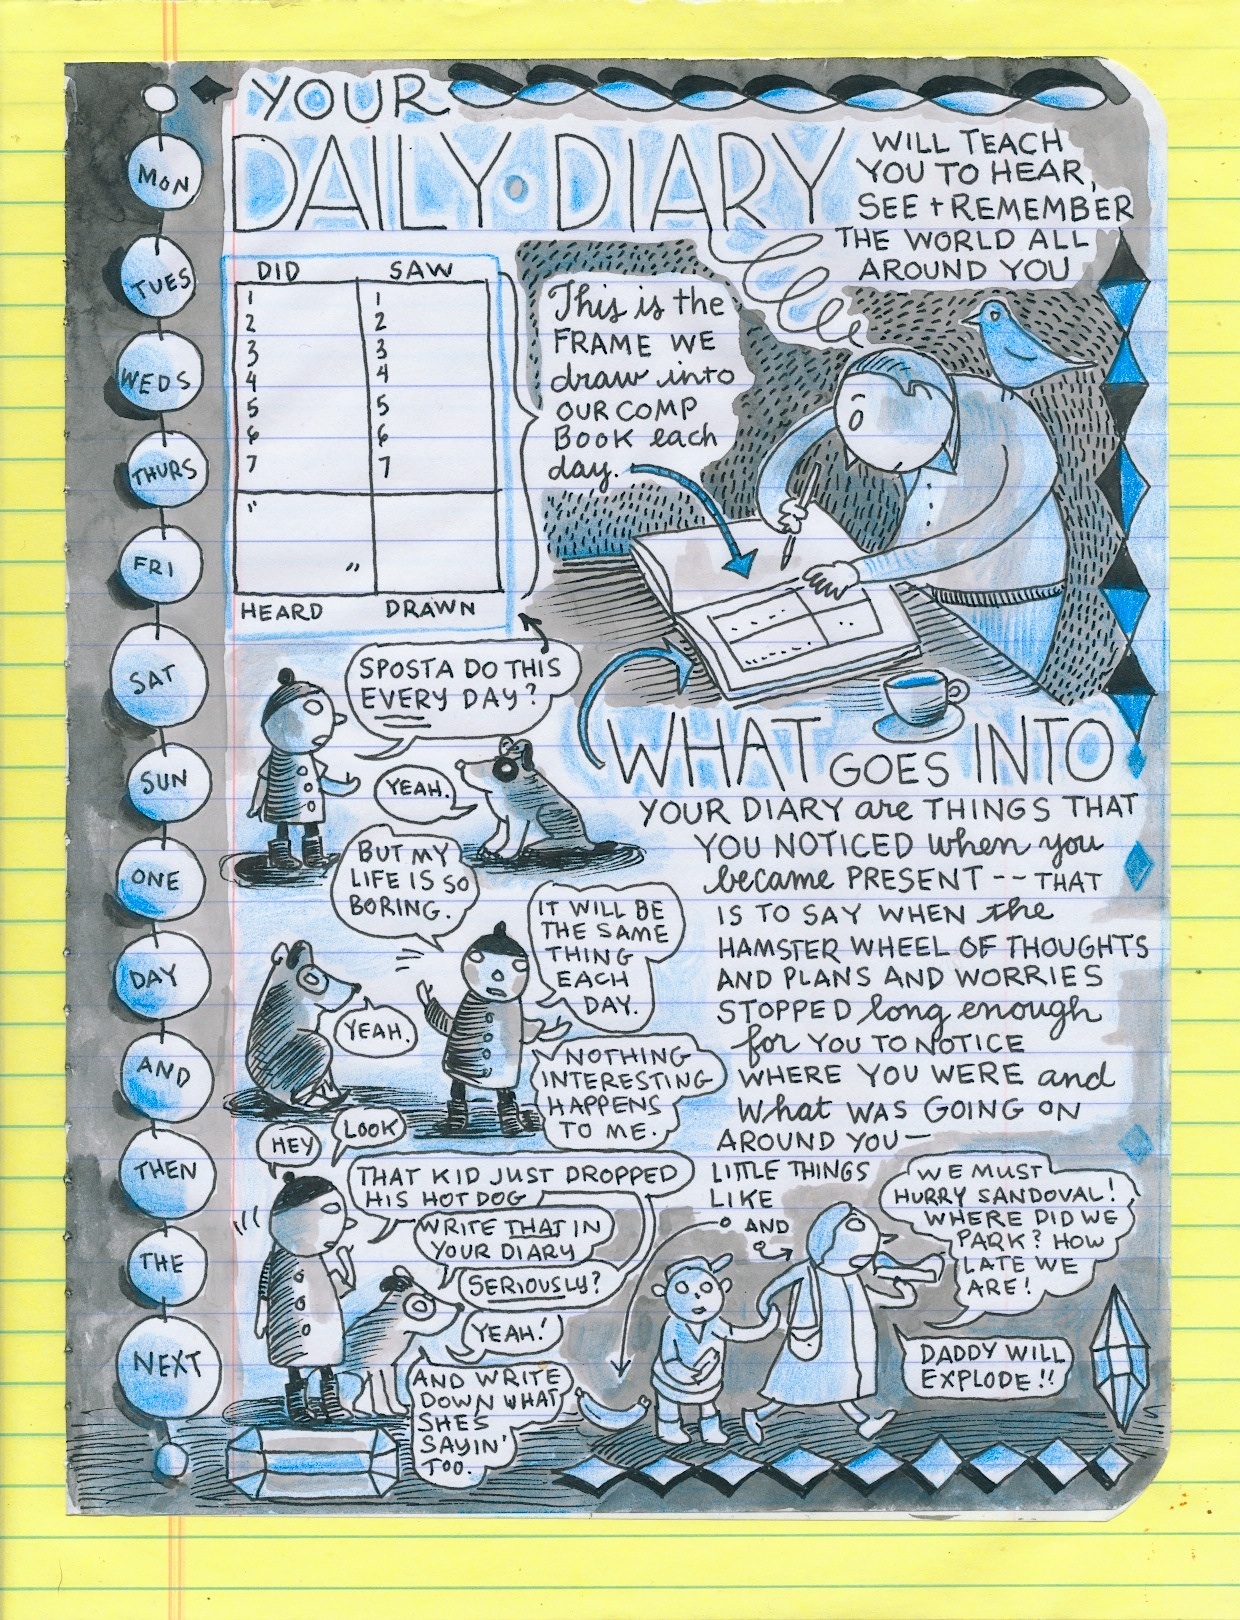 YOUR
DAILY DIARY
WILL TEACH
YOU TO HEAR,
SEE + REMEMBER
THE WORLD ALL
AROUND YOU
MON
TUES
WEDS
THURS
FRI
SAT
SUN
ONE
DAY
AND
THEN
THE
NEXT
DID SAW
1 1
2 2
3 3
4 4
5 5
6 6
7 7
"
"
HEARD DRAWN
This is the
FRAME WE
draw into
OUR COMP
BOOK each
day.
SPOSTA DO THIS
EVERY DAY?
YEAH.
BUT MY
LIFE IS SO
BORING.
YEAH.
IT WILL BE
THE SAME
THING
EACH
DAY.
NOTHING
INTERESTING
HAPPENS
TO ME.
WHAT GOES INTO
YOUR DIARY are THINGS THAT
YOU NOTICED when you
became PRESENT -- THAT
IS TO SAY WHEN the
HAMSTER WHEEL OF THOUGHTS
AND PLANS AND WORRIES
STOPPED long enough
for YOU TO NOTICE
WHERE YOU WERE and
What WAS GOING ON
AROUND YOU—
LITTLE THINGS
LIKE
AND
HEY
LOOK
THAT KID JUST DROPPED
HIS HOT DOG
WRITE THAT IN
YOUR DIARY
SERIOUSLY?
YEAH!
AND WRITE
DOWN WHAT
SHES
SAYIN'
TOO.
WE MUST
HURRY SANDOVAL!
WHERE DID WE
PARK? HOW
LATE WE
ARE!
DADDY WILL
EXPLODE!!